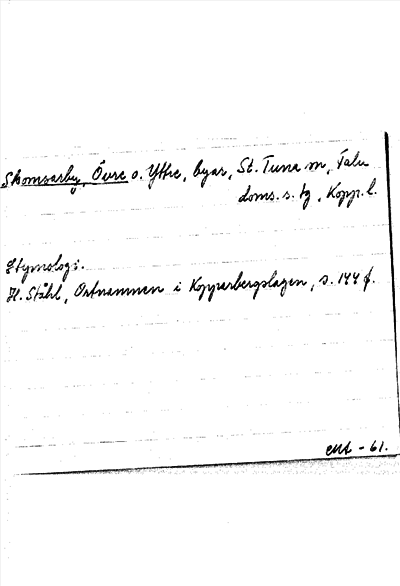 Skomsarby, Övre o. Yttre, byar, St. Tuna sn, Falu
doms. s. tg, Kopp. l.
Etymologi.
H. Ståhl, Ortnamnen i Kopparbergslagen, s. 144 f.
-61.